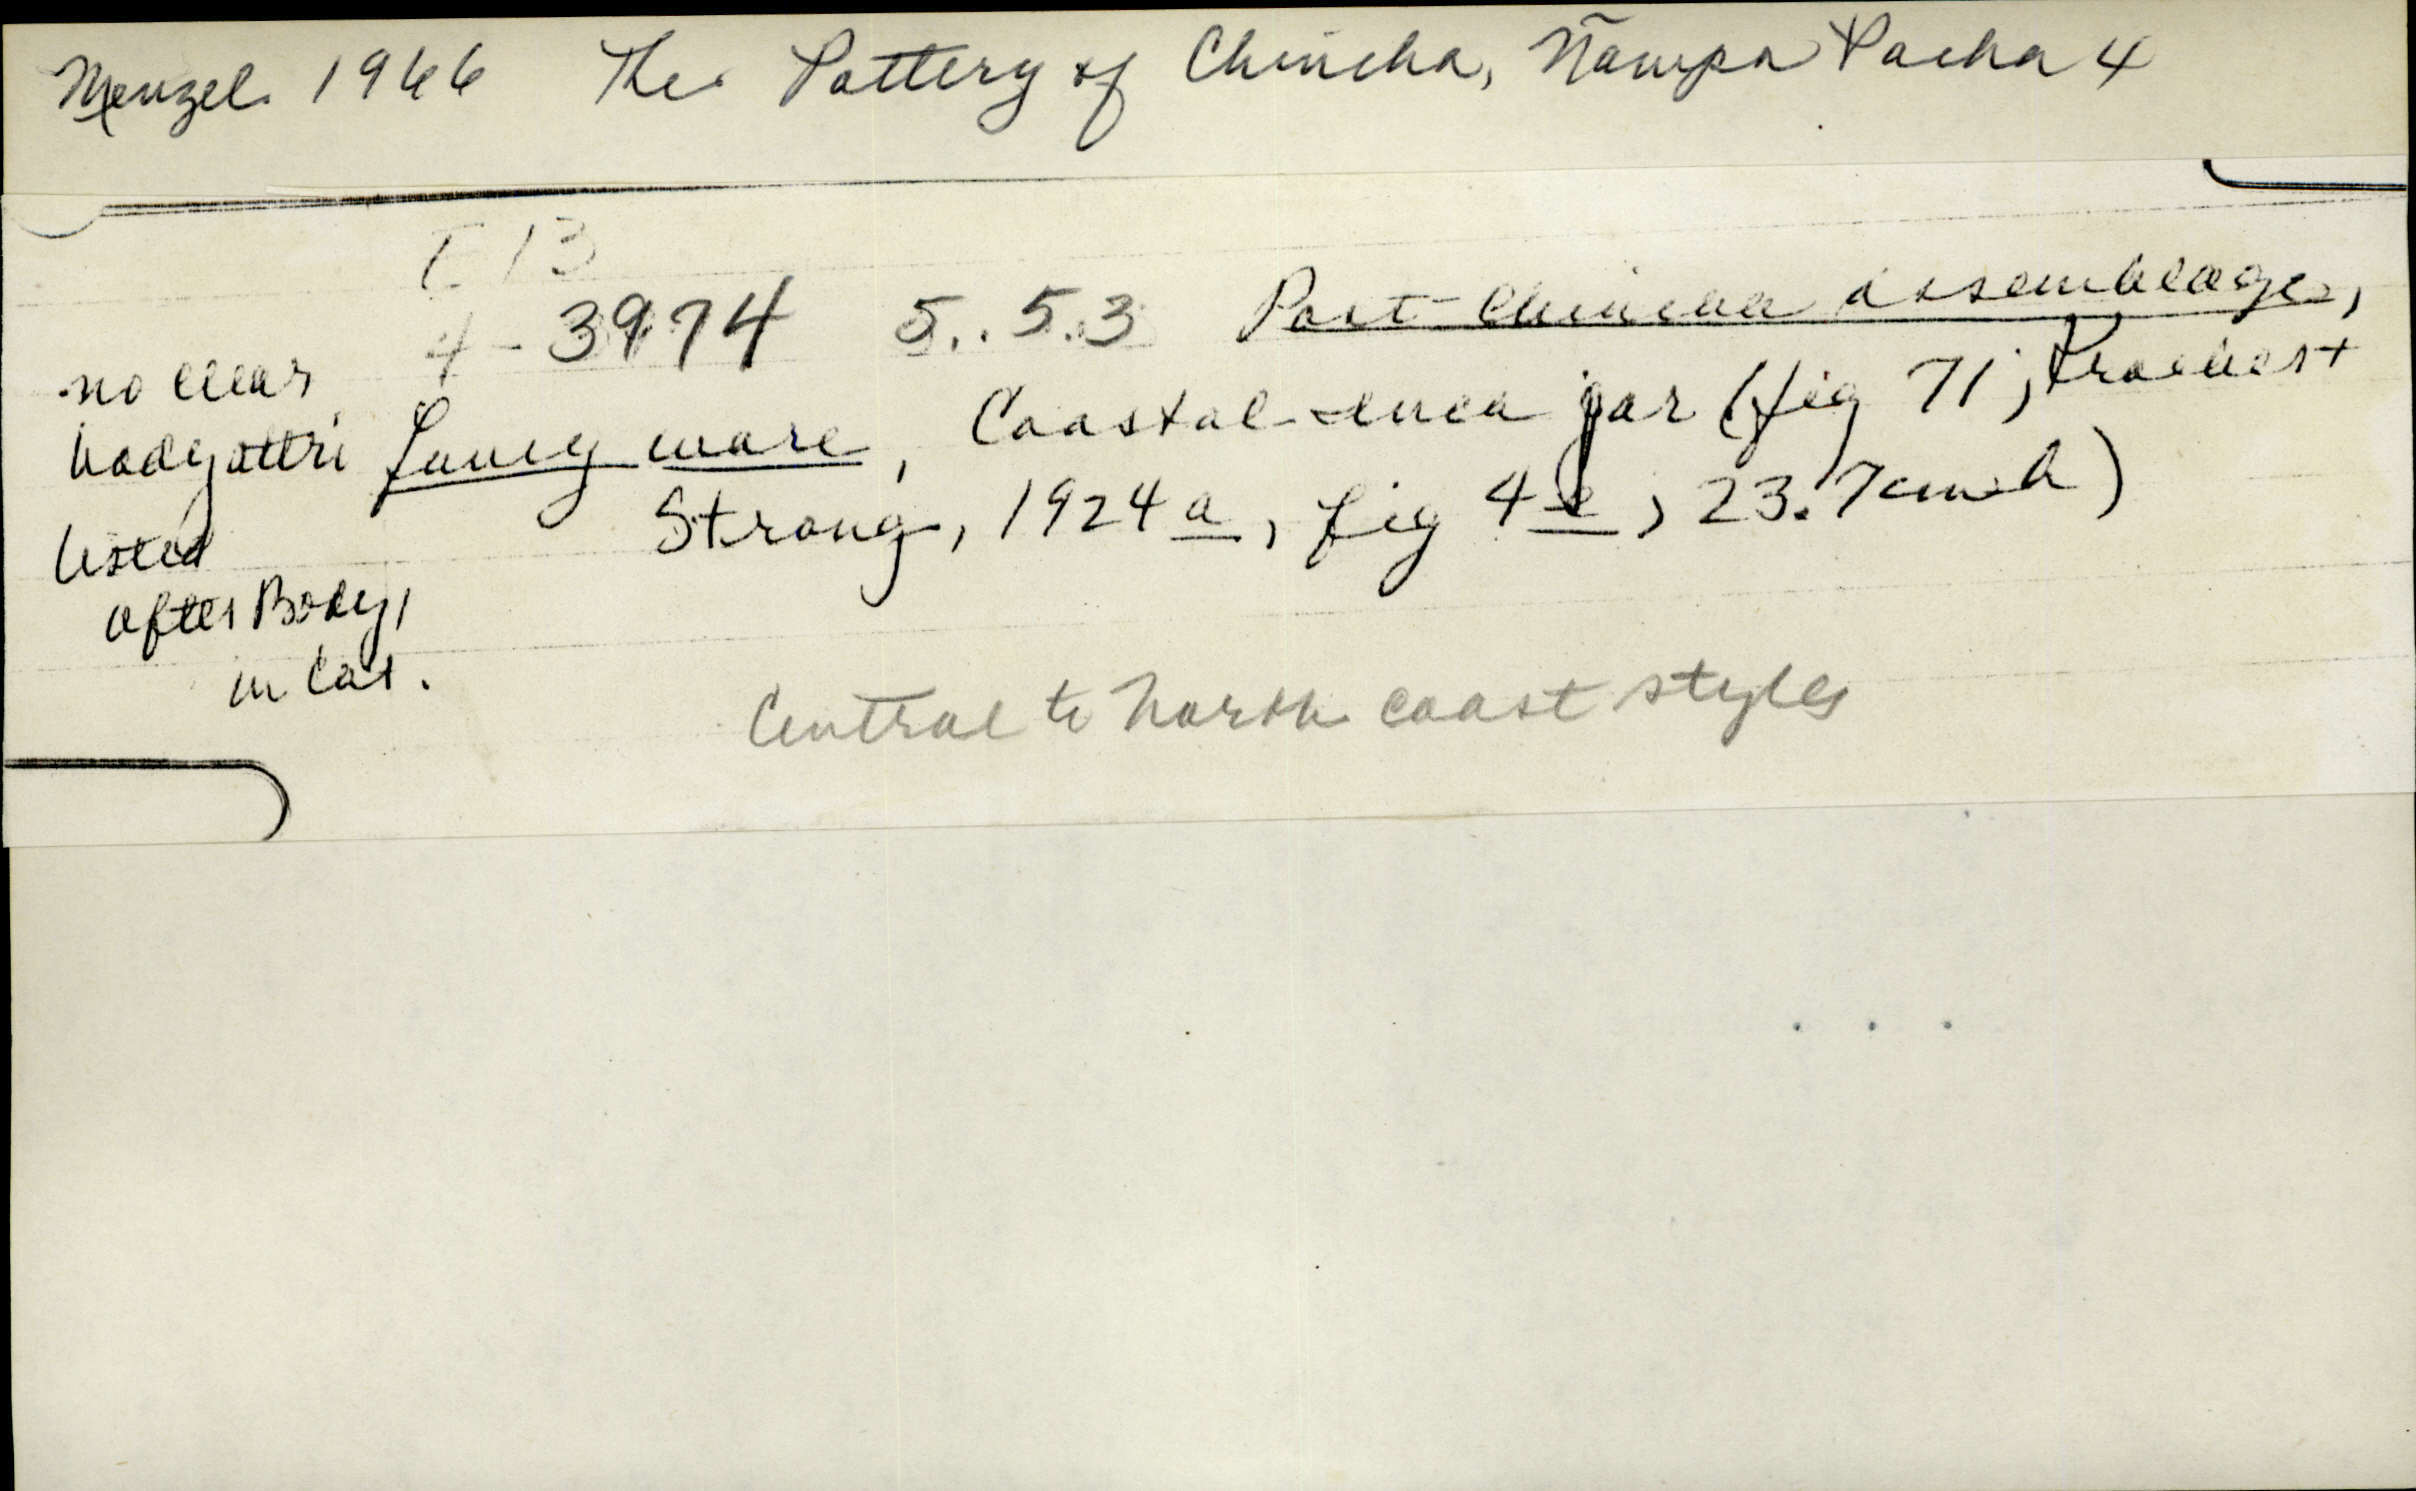 Menzel 1966 The Pottery of Chincha, Ñawpa Pacha 4
T 13
4-3974 5..5.3 Post-Chincha assemblage,
no clear
body attri fancy ware, Coastal-Inca jar (fig 71; Kroeber +
Strong, 1924a, fig 4e, 23.7cm h)
listed
after Body,
in Cat.
Central to North coast styles